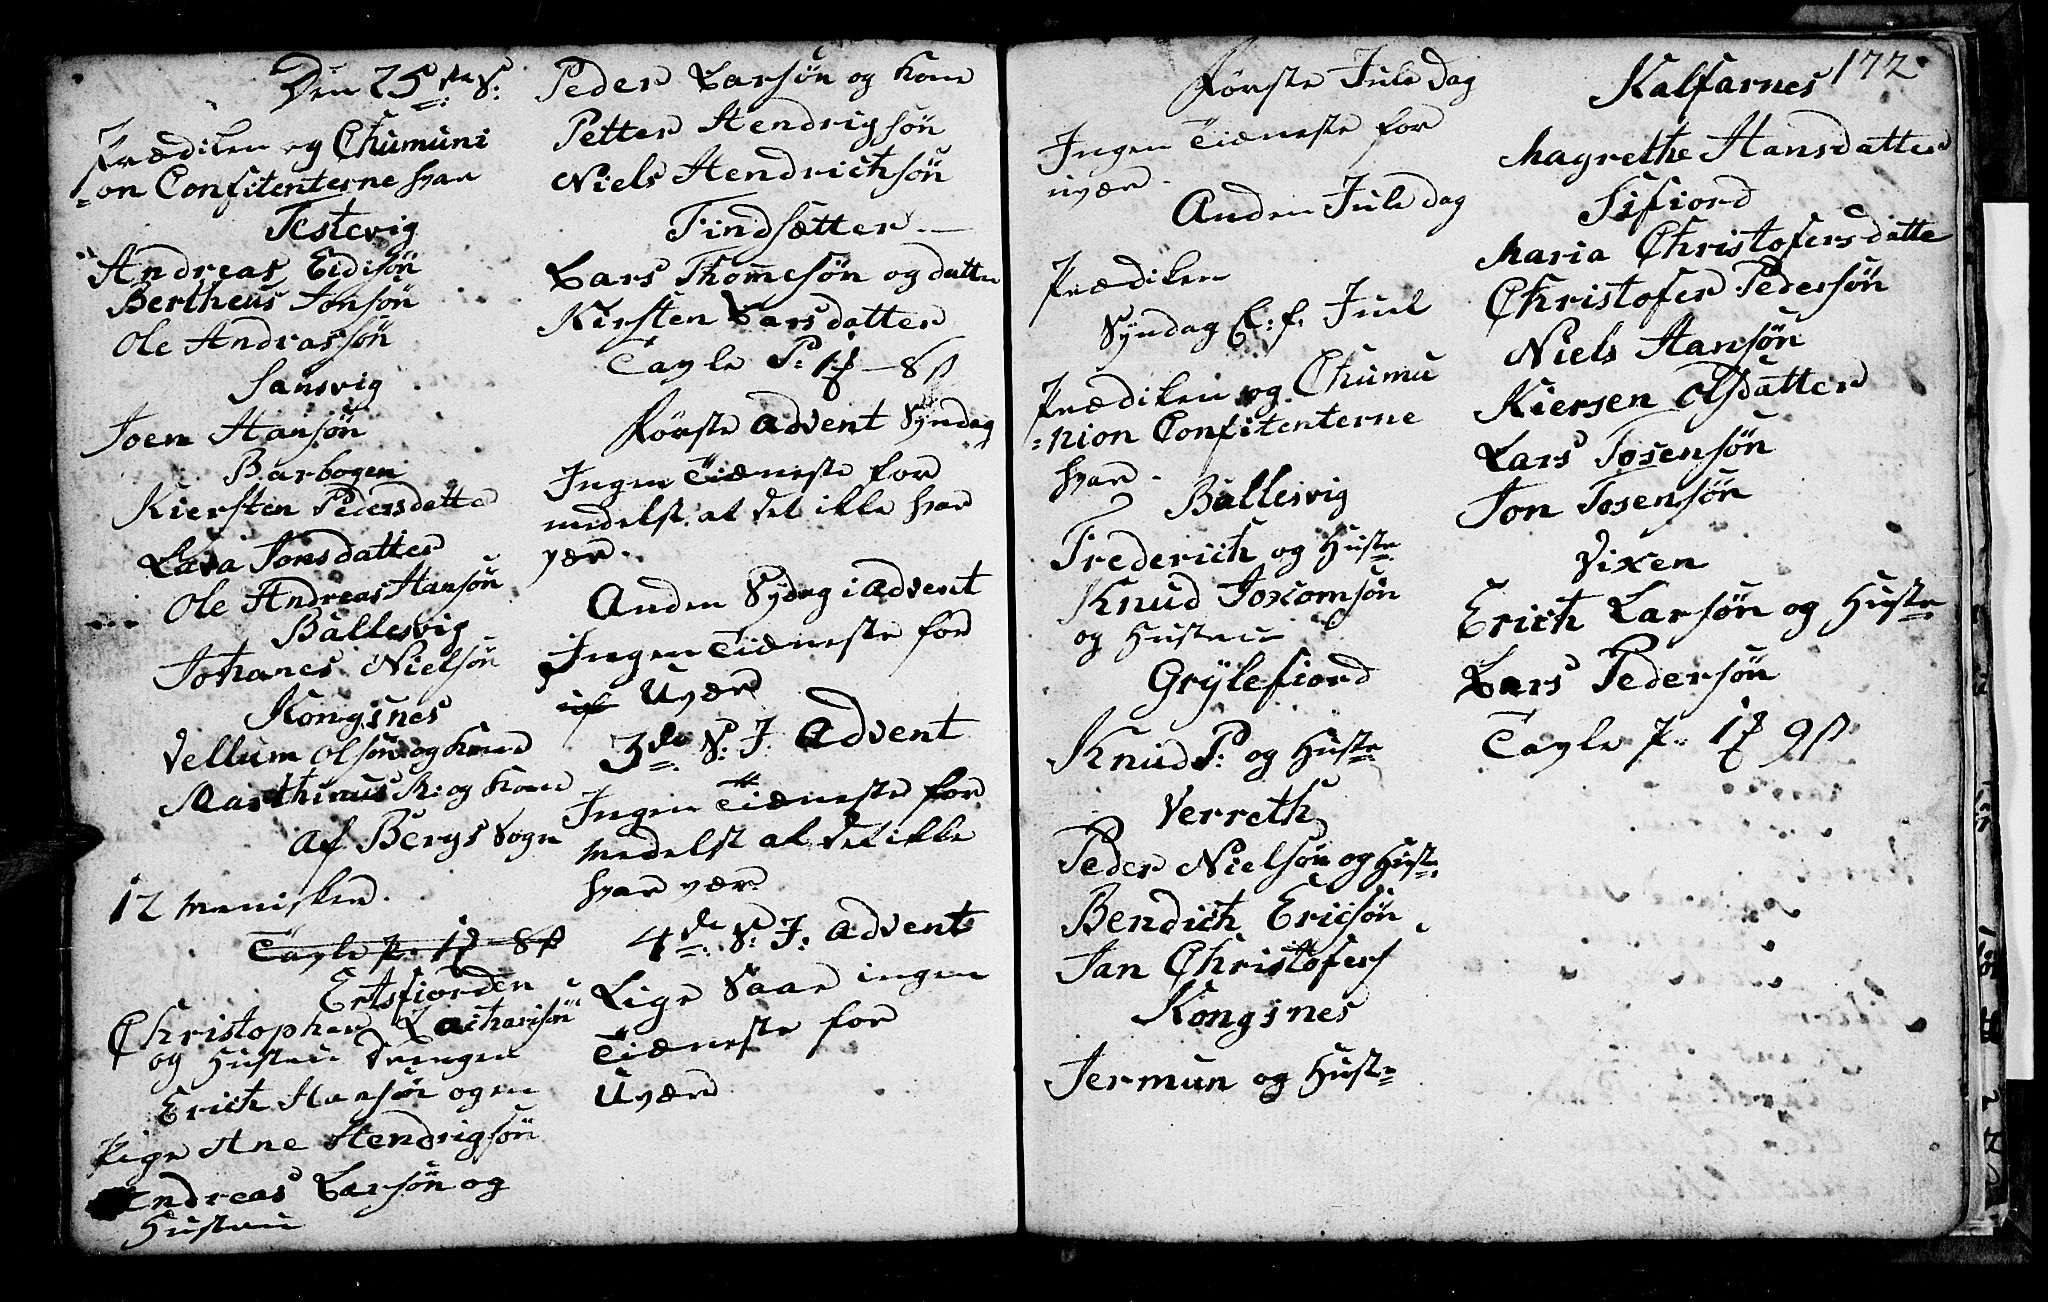 Den 25de S:
Prædiken og Chumuni
=on Confitenterne hvar
Testevig
Andreas Eidisön
Bertheus Jonsön
Ole Andrassön
Sansvig
Joen Hansön
Barbogen
Kiersten Pedersdatter
Lava Jonsdatter
Ole Andreas Hansön
Ballesvig
Johanes Nielsön
Kongsnes
Vellum Olsön og kone
Marthinus M: og kone
af Bergs Sogn
12 menisker.
Tagle p. 1 8 ß
Ertsfiorden
Christopher Zacharisön
og Hustru Drengen
Erich Hansön og en
Pige Ane Hendrigsön
Andreas Larsön og
Hustru
Peder Larsön og kone
Petter Hendrigsön
Niels Hendrichsön
Findsætter
Lars Thomesön og datter
Kirsten Larsdatter
Tagle P: 1 - 8 ß
Förste Advent Syndag
Ingen Tiæneste for
medelst at det ikke hvar
vær.
Anden Sydag i Advent
Ingen Tiæneste for
Uvær
3de S: I Advent
Ingen Tiæneste for
medelst at det ikke
hvar vær
4de S: I: Advent
Lige Saae ingen
Tiæneste for
Uvær
Förste Jule Dag
Ingen Tiæneste for
uvær.
Anden Jule dag
Prædiken
Syndag E: f. Juul
Prædiken og Chumu
=nion Confitenterne
hvar.
Ballesvig
Frederich og Hustr
Knud Joxomsön
og Hustru
Grÿlefiord
Knud P: og Hustr
Verreth
Peder Nielsön og Hust:
Bendich Ericsön
Jan Christofers
Kongsnes
Jermun og Hustr
172
Kalfarnes
Magrethe Hansdatter
Sifiord
Maria Christofersdatte
Christofer Pedersön
Niels Hansön
Kiersen Olsdatter
Lars Tosensön
Jon Tosensön
Vixen
Erich Larsön og Hustr
Lars Pedersön
Tagle p. 1 9 ß